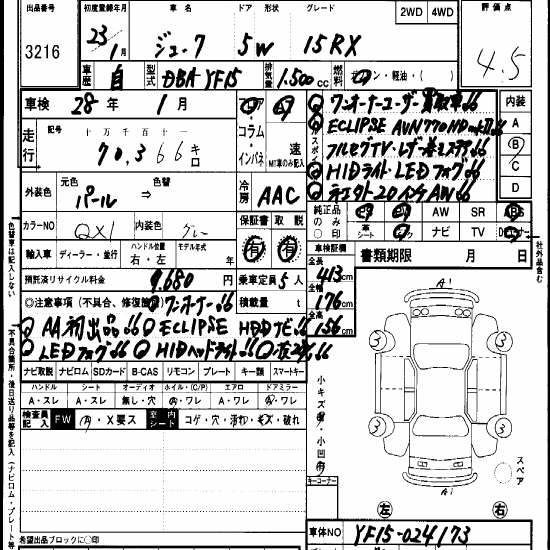 出品番号 初度登録年月 車名 ドア 形状 グレード 2WD 4WD 評価点
3216 23年1月 ジューク 5W 15RX 4.5
車歴 自 型式 DBA YF15 排気量 1,500cc 燃料 ガソリン・軽油・( )
車検 28年 1月
走行 記号 十万 千 百 十 一
70,366キロ
フロア コラム インパネ 速 MT車のみ記入
外装色 元色 パール ⇒ 色替
冷房 AAC
カラーNO QX1 内装色 グレー
保証書 有 取説 有
輸入車 ディーラー・並行 ハンドル位置 右・左 モデル年式 年
預託済リサイクル料金 9,680円 乗車定員 5人
積載量 t
ワンオーナーユーザー買取車
ECLIPSE AVN770HD
フルセグTV・レザー巻ステア
HIDライト・LEDフォグ
社外20インチAW
内装 A B C D
純正品のみ○印 AW SR ABS
革シート ナビ TV
車検証欄 書類期限 月 日
全長 413cm
全幅 176cm
全高 156cm
◎注意事項(不具合、修復箇所) ワンオーナー
AA初出品 ECLIPSE HDDナビ
LEDフォグ HIDヘッドライト
ナビ取説 ナビロム SDカード B-CAS リモコン プレート キー類 スマートキー
ハンドル シート オーディオ ホイル・(C/P) エアロ ドアミラー
A・スレ A・スレ 無し・穴 A・ワレ A・ワレ A・ワレ
検査員記入 FW A・X要ス 室内シート コゲ・穴・汚れ・キズ・破れ
色替車は記入しない
不具合箇所・後日送り品等を記入(ナビロム・プレート等)
社外品含む
小キズ 小凹
キーコーナー
A1
3 3
3 3
A1
スペア
左 右
希望出品ブロックに○印
車体NO YF15-024173